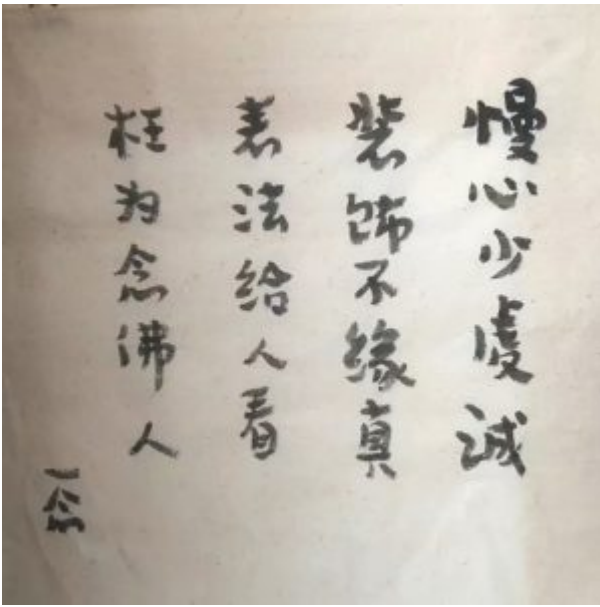 慢心少虔诚
装饰不缘真
表法给人看
枉为念佛人
一念